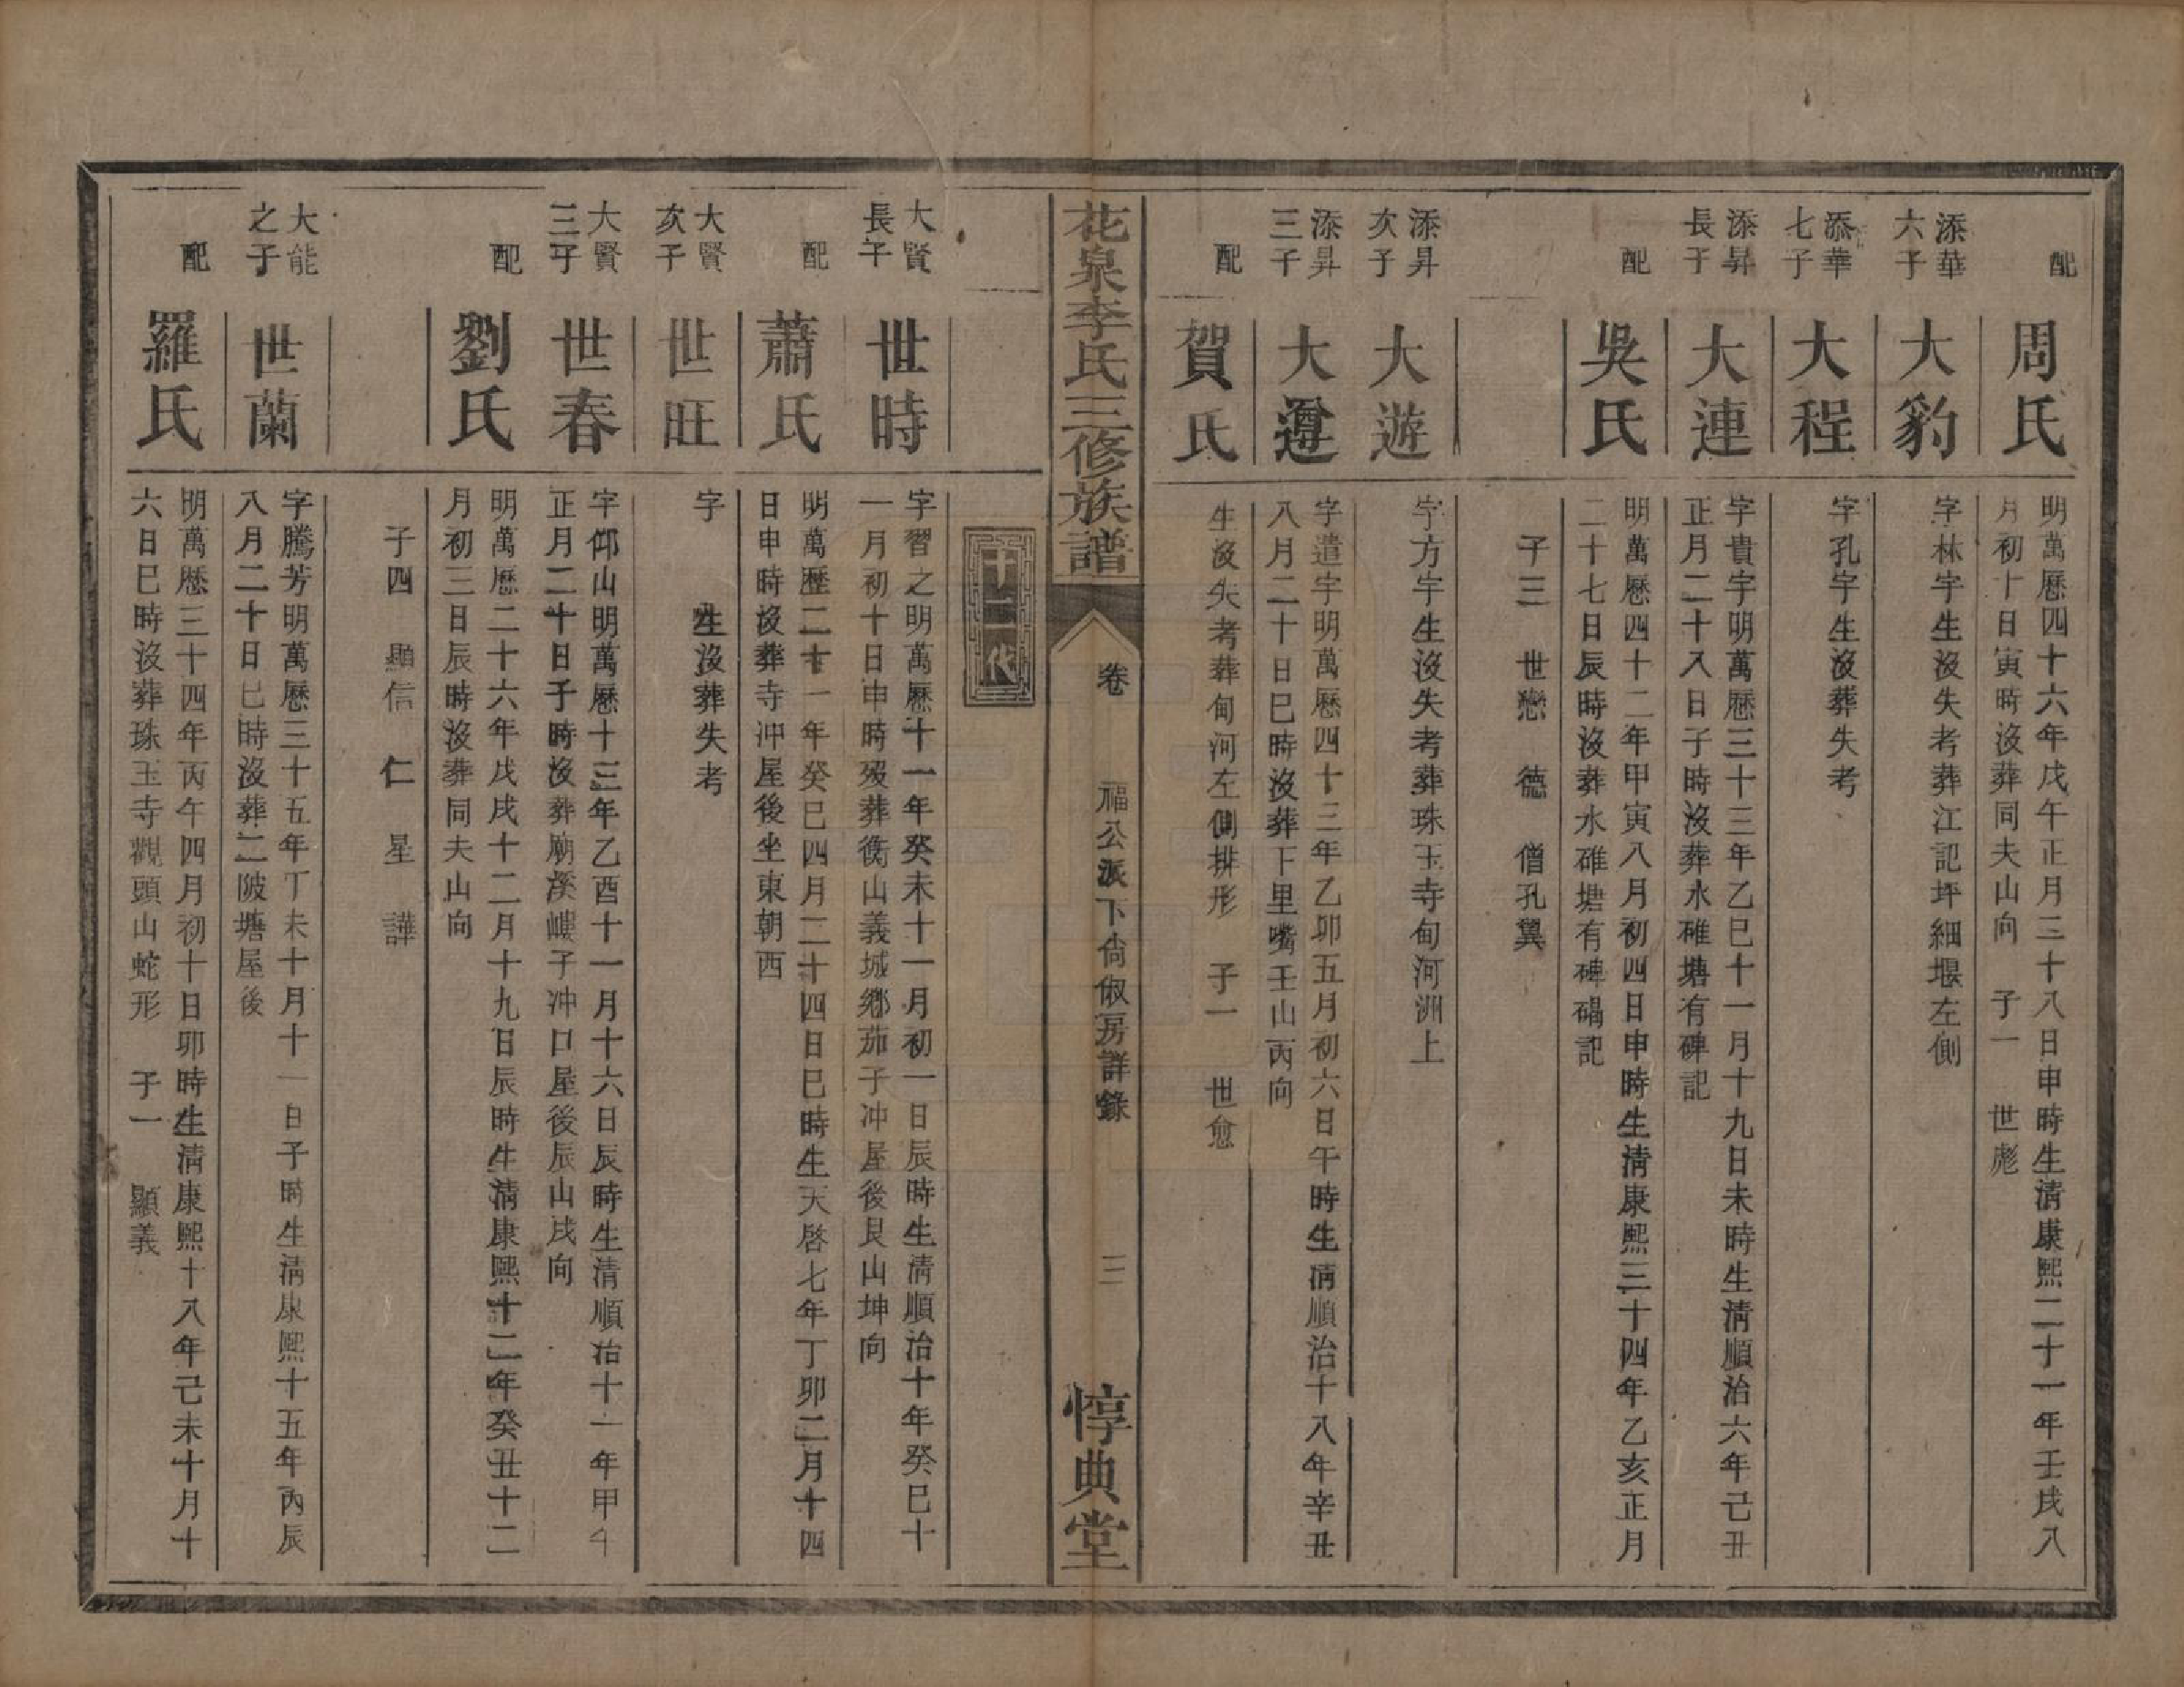 配
周氏
明萬厯四十六年戊午正月三十八日申時生清康熙二十一年壬戌八
月初十日寅時沒葬同夫山向　子一　世彪
添華
六子
大豹
字林宇生沒失考葬江記坪細堰左側
添華
七子
大程
字孔宇生沒葬失考
添昇
長子
大連
字貴宇明萬厯三十三年乙巳十一月十九日未時生清順治六年己丑
正月二十八日子時沒葬水碓塘有碑記
配
吳氏
明萬厯四十二年甲寅八月初四日申時生清康熙三十四年乙亥正月
二十七日辰時沒葬水碓塘有碑碣記
子三　世戀　德　僧孔翼
添昇
次子
大遊
字方宇生沒失考葬珠玉寺甸河洲上
添昇
三子
大遵
字遣宇明萬厯四十三年乙卯五月初六日午時生清順治十八年辛丑
八月二十日巳時沒葬下里嘴壬山丙向
配
賀氏
生沒失考葬甸河左側排形　子一　世愈
花泉李氏三修族譜
卷　福公派下尙俶房詳錄　三
惇典堂
十一代
大賢
長子
世時
字習之明萬厯十一年癸未十一月初一日辰時生清順治十年癸巳十
一月初十日申時歿葬衡山義城鄉茄子冲屋後艮山坤向
配
蕭氏
明萬歷二十一年癸巳四月二十四日巳時生天啓七年丁卯二月十四
日申時沒葬寺冲屋後坐東朝西
大賢
次子
世旺
字　　生沒葬失考
大賢
三子
世春
字仰山明萬厯十三年乙酉十一月十六日辰時生清順治十一年甲午
正月二十日子時沒葬廟溪嶁子冲口屋後辰山戌向
配
劉氏
明萬厯二十六年戊戌十二月十九日辰時生清康熙十二年癸丑十二
月初三日辰時沒葬同夫山向
子四　顯信　仁　星　譁
大能
之子
世蘭
字騰芳明萬厯三十五年丁未十月十一日子時生清康熙十五年丙辰
八月二十日巳時沒葬二陂塘屋後
配
羅氏
明萬厯三十四年丙午四月初十日卯時生清康熙十八年己未十月十
六日巳時沒葬珠玉寺觀頭山蛇形　子一　顯義